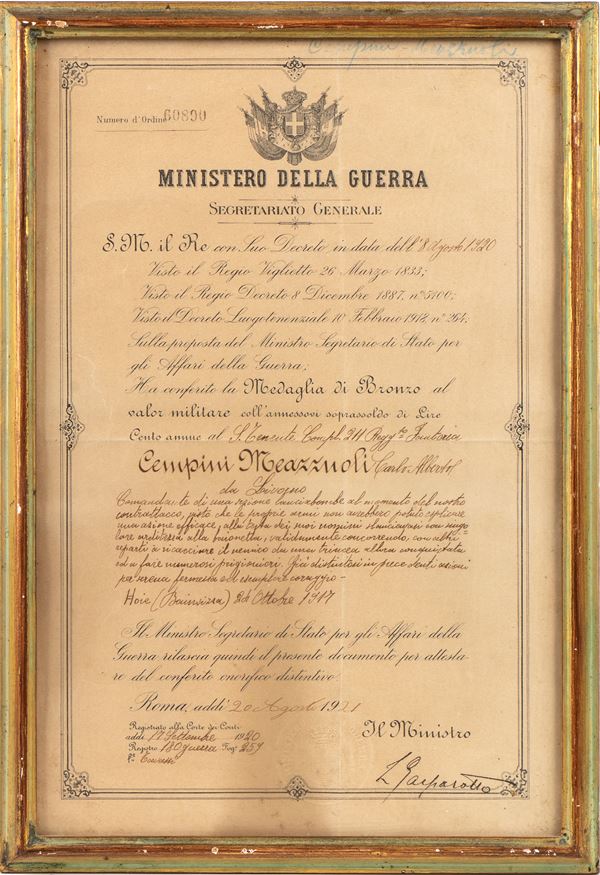 Cempini-Meazzuoli
Numero d'Ordine 60890
MINISTERO DELLA GUERRA
SEGRETARIATO GENERALE
S. M. il Re con Suo Decreto in data dell' 8 Agosto 1920
Visto il Regio Viglietto 26 Marzo 1833;
Visto il Regio Decreto 8 Dicembre 1887, n° 5100;
Visto il Decreto Luogotenenziale 10 Febbraio 1918, n° 264;
Sulla proposta del Ministro Segretario di Stato per
gli Affari della Guerra;
Ha conferito la Medaglia di Bronzo al
valor militare coll'annessovi soprassoldo di Lire
Cento annue al S. Tenente Compl. 211 Regg.to Fanteria
Cempini Meazzuoli Carlo Alberto
da Livorno
Comandante di una sezione lanciabombe al momento del nostro
contrattacco, visto che le proprie armi non avrebbero potuto esplicare
una azione efficace, alla testa dei suoi uomini slanciavasi con singo
lare arditezza alla baionetta, validamente concorrendo, con altri
reparti a ricacciare il nemico da una trincea allora conquistata
ed a fare numerosi prigionieri. Già distintosi in precedenti azioni
per serena fermezza ed esemplare coraggio -
Hoie (Bainsizza) Ottobre 1917
Il Ministro Segretario di Stato per gli Affari della
Guerra rilascia quindi il presente documento per attesta-
re del conferito onorifico distintivo.
Roma, addì 20 Agosto 1921
Registrato alla Corte dei Conti
addì 17 Settembre 1920
Registro 180 guerra Fog. 259
Il Ministro
L. Gasparotto